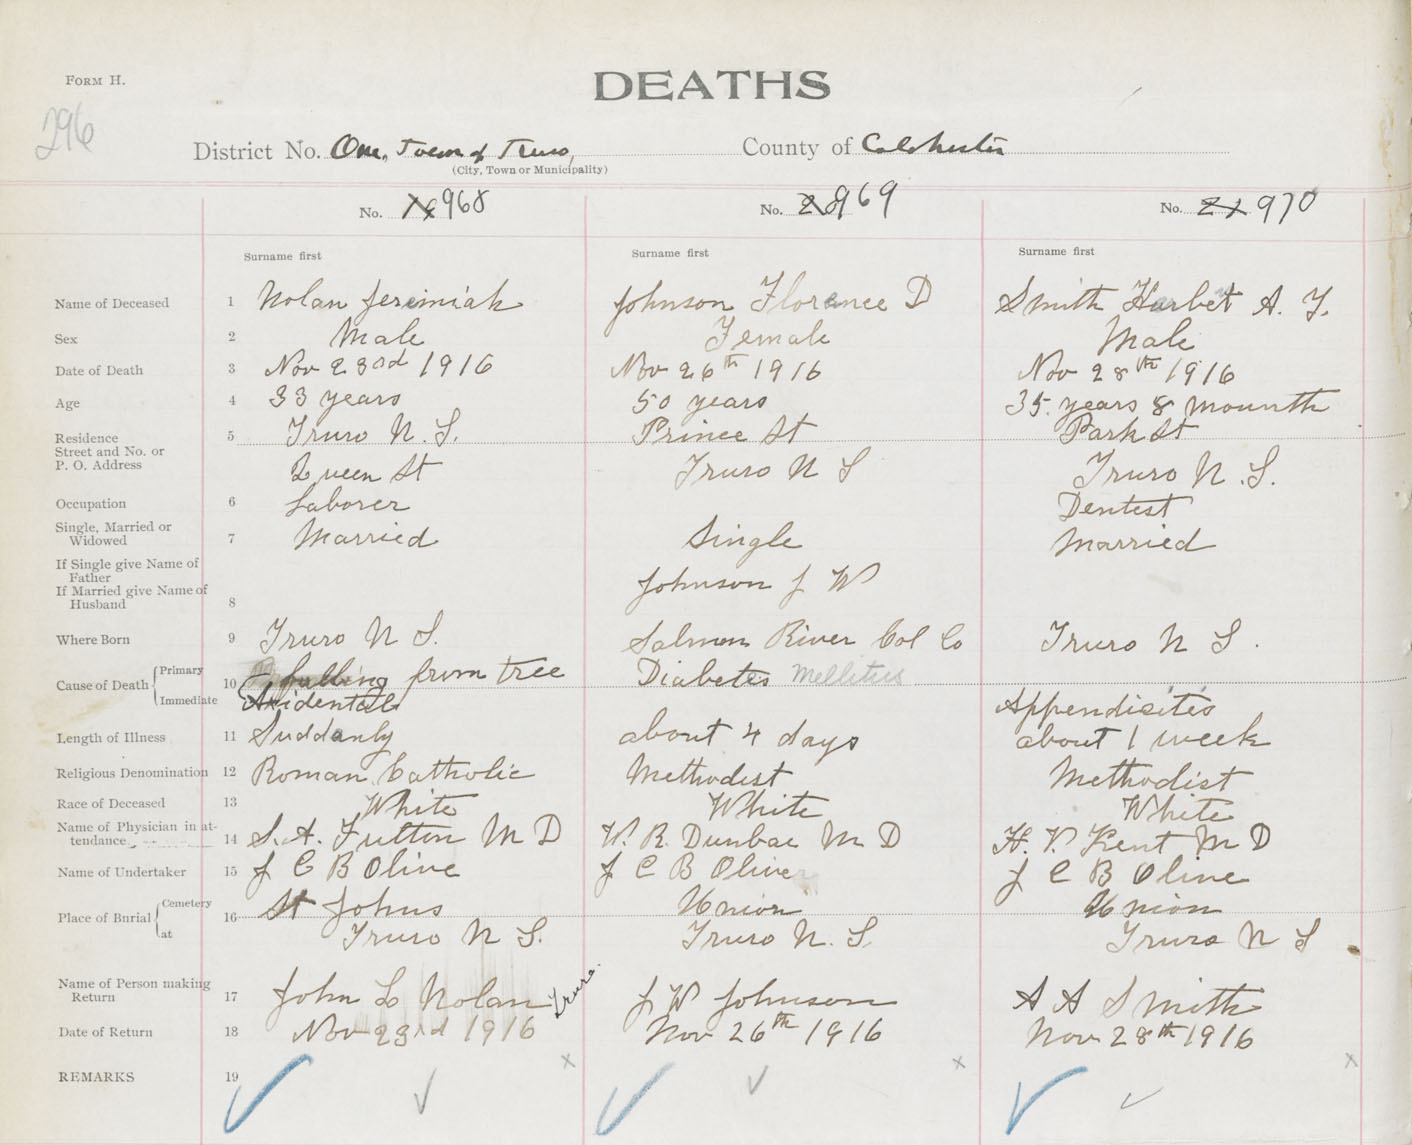 FORM H.
DEATHS
296
District No. One, Town of Truro, County of Colchester
(City, Town or Municipality)
No. 19 968 No. 20 969 No. 21 970
Surname first Surname first Surname first
Name of Deceased 1 Nolan Jeremiah Johnson Florence D Smith Harbet A. F.
Sex 2 Male Female Male
Date of Death 3 Nov 23rd 1916 Nov 26th 1916 Nov 28th 1916
Age 4 33 years 50 years 35 years 8 mounth
Residence 5 Truro N.S. Prince St Park St
Street and No. or
P. O. Address Queen St Truro N S Truro N.S.
Occupation 6 Laborer Dentest
Single, Married or
Widowed 7 Married Single Married
If Single give Name of
Father
If Married give Name of Johnson J W
Husband 8
Where Born 9 Truro N S. Salmon River Col Co Truro N S.
Cause of Death Primary 10 falling from tree Diabetes Mellitus
Immediate Axidental Appendicites
Length of Illness 11 Suddanly about 4 days about 1 week
Religious Denomination 12 Roman Catholic Methodist Methodist
Race of Deceased 13 White White White
Name of Physician in at-
tendance 14 S. A. Fulton M D W. R. Dunbar M D H. V. Kent M D
Name of Undertaker 15 J C B Olive J C B Olive J C B Olive
Place of Burial Cemetery 16 St Johns Union Union
at Truro N S. Truro N. S. Truro N S
Name of Person making
Return 17 John L Nolan Truro. J W Johnson A A Smith
Date of Return 18 Nov 23rd 1916 Nov 26th 1916 Nov 28th 1916
REMARKS 19